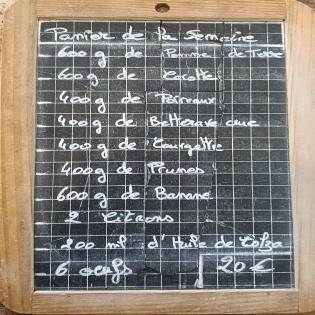 Panier de la Semaine
600 g de Pomme de Terre
600 g de Carotte
400 g de Poireaux
400 g de Betterave cuie
400 g de Courgette
400 g de Prunes
600 g de Banane
2 Citrons
200 ml d'Huile de Colza
6 oeufs 20 €